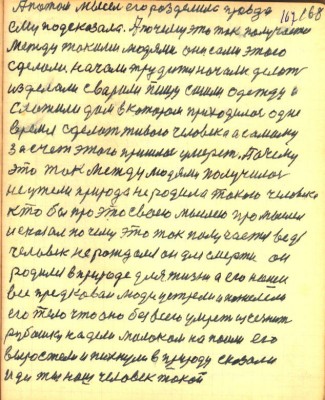 А потом мысль его разделила правда 167/68
ему подсказала. А почему это так получается
между такими людьми они сами этого
сделали, начали трудиться начали делать
изделали сварили пищу сшили одежду и
сложили дом в котором приходилось одно
время сделать живого человека а самому
за счет этого пришлось умереть. Почему
это так между людями получилось
неужели природа не родила такого человека
кто бы про это своею мыслею промыслил
и сказал почему это так получается ведь
человек не рождался он для смерти он
родился в природе для жизни а его наши
все предки сами люди встрели и пожалели
его тело что оно без всего умрет и сшили
рубашку надели молоком напоили его
вырастили и пихнули в природу сказали
иди ты наш человек такой